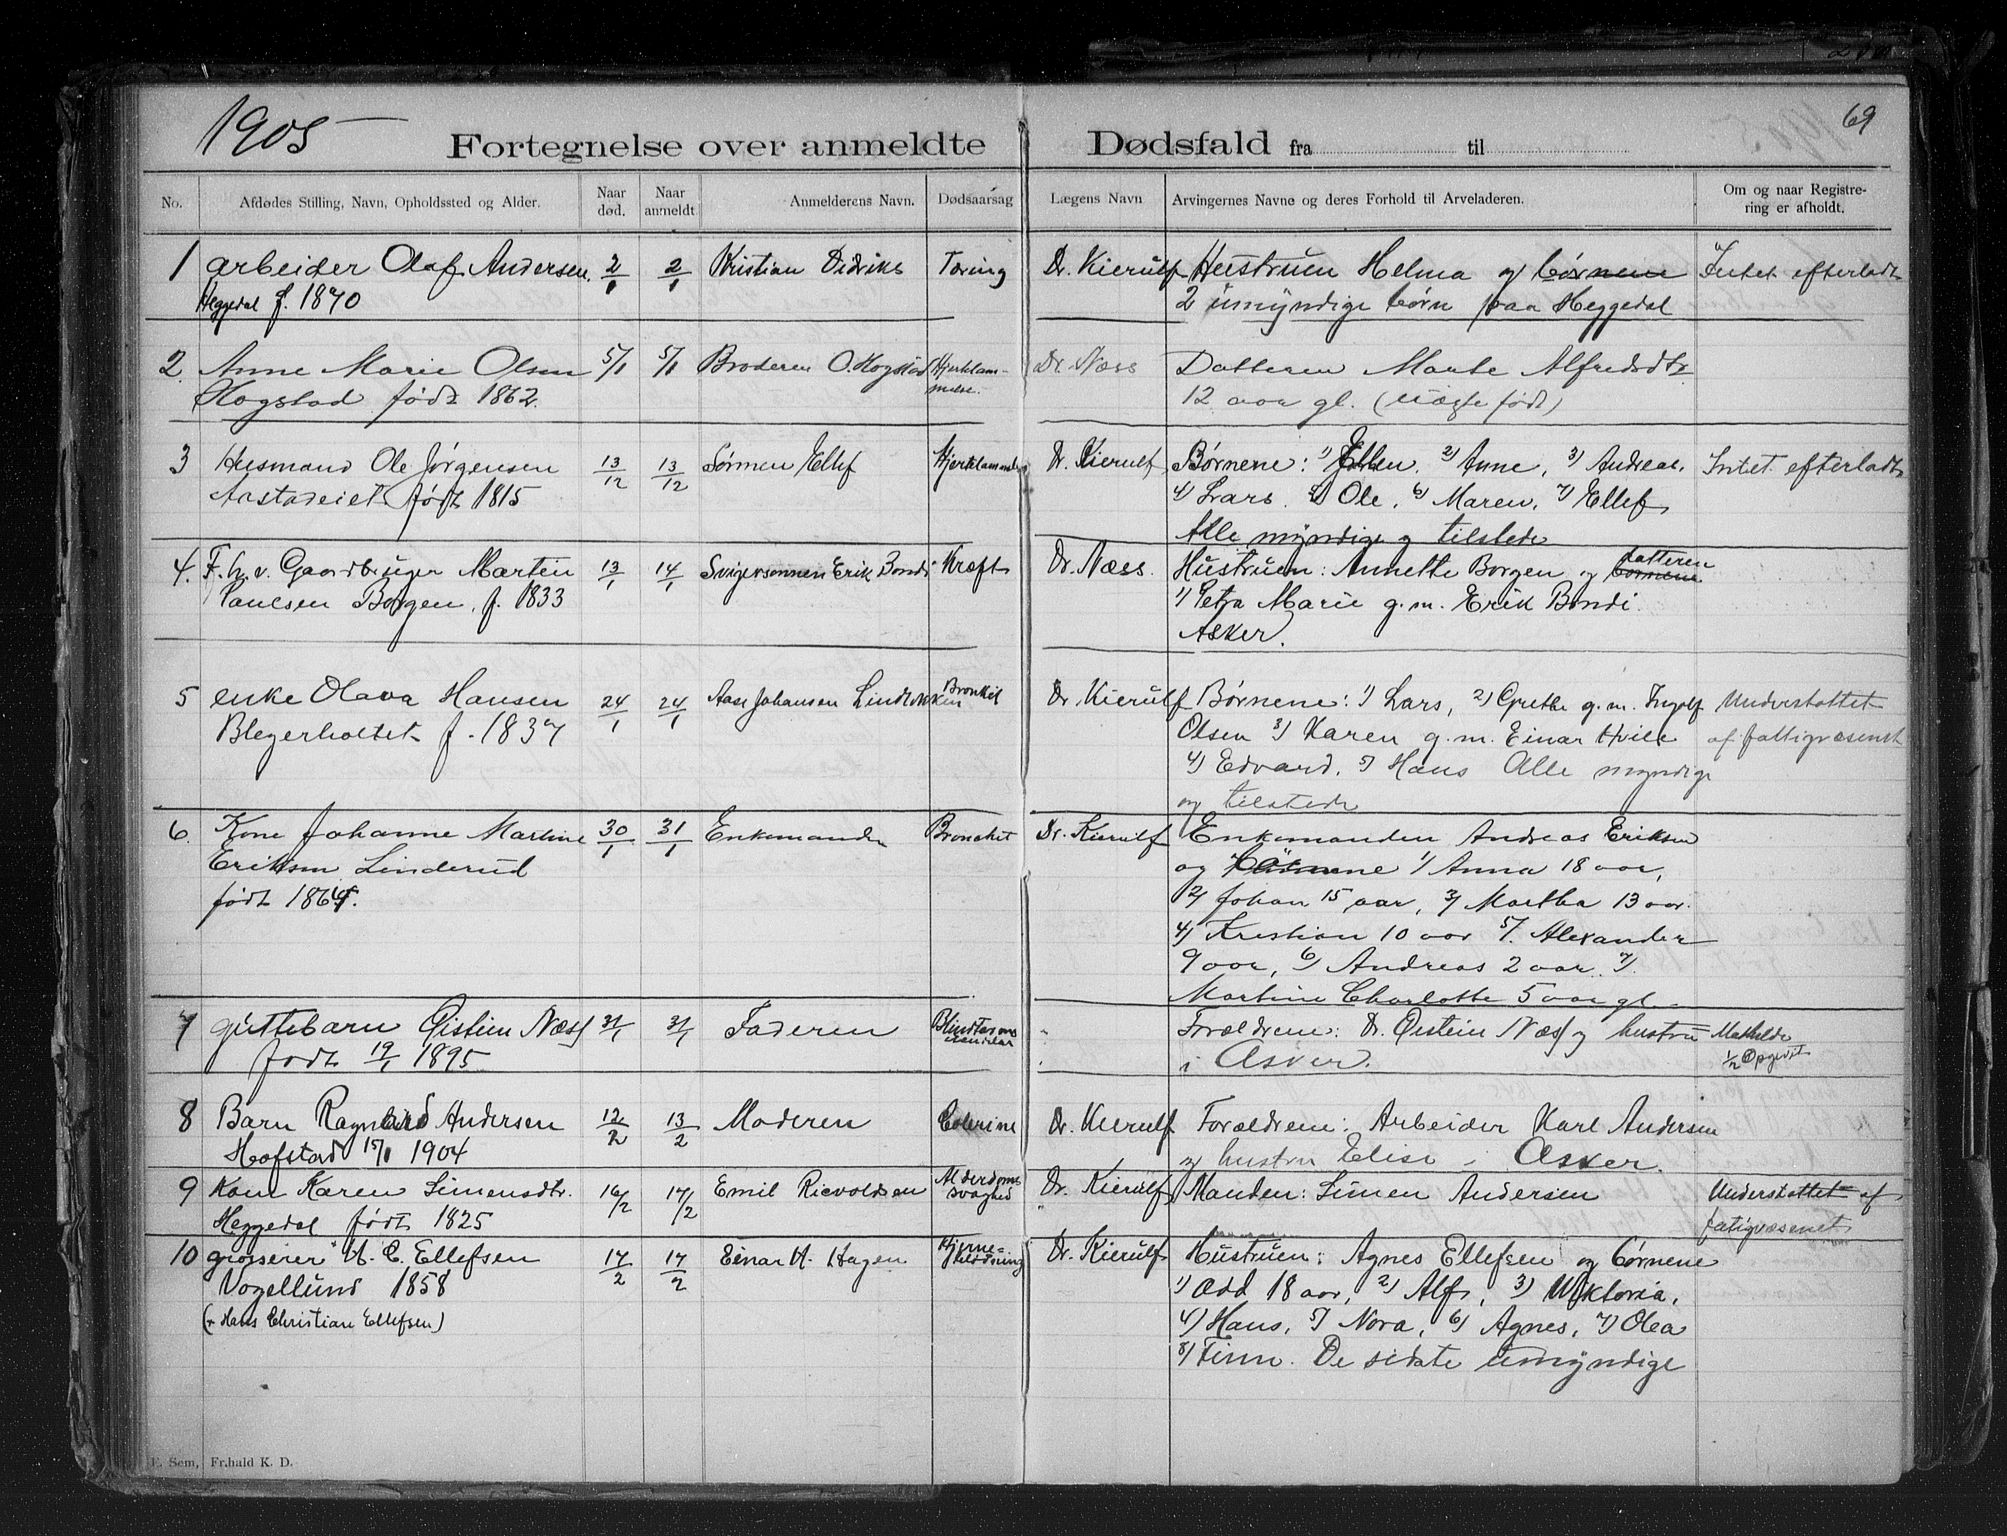 1905
69
Fortegnelse over anmeldte Dødsfald fra til
No. Afdødes Stilling, Navn, Opholdssted og Alder. Naar død. Naar anmeldt. Anmelderens Navn. Dødsaarsag Lægens Navn Arvingernes Navne og deres Forhold til Arveladeren. Om og naar Registrering er afholdt.
1 arbeider Olaf Andersen 2/1 2/1 Kristian Didriks Tæring Dr. Kierulf Hustruen Helma og børnene Intet efterladt
Heggedal f. 1870 2 umyndige børn paa Heggedal
2. Anne Marie Olsen 5/1 5/1 Broderen O. Hogstad Hjertelam- Dr. Næss Datteren Marte Alfredsdtr
Hogstad født 1862. melse. 12 aar gl. (uægte født)
3 Husmand Ole Jørgensen 13/12 13/12 Sønnen Ellef Dr. Kierulf Børnene: 1) Ellen. 2) Anne, 3) Andreas. Intet efterladt
født 1815 4) Lars. 5) Ole, 6) Maren, 7) Ellef
Alle myndige og tilstede
4. F. h. v. Gaardbruger Martin 13/1 14/1 Svigersønnen Erik Bondi Kræft Dr. Næss. Hustruen: Annette Borgen og børnene datteren
Paulsen Borgen, f. 1833 1) Petra Marie g. m. Erik Bondi
Asker.
5 enke Olava Hansen 24/1 24/1 Aase Johansen Bronkit Dr. Kierulf Børnene: 1) Lars, 2) Grethe g. m. Ingolf Understøttet
f. 1837 Olsen 3) Karen g. m. Einar Hvile af fattigvæsenet
4) Edvard, 5) Hans Alle myndige
og tilstede
6. Kone Johanne Martine 30/1 31/1 Enkemanden Bronchit Dr. Kierulf Enkemanden Andreas Eriksen
Eriksen Linderud og børnene 1) Anna 18 aar,
født 2) Johan 15 aar, 3) Martha 13 aar.
4) Kristian 10 aar 5). Alexander
9 aar, 6) Andreas 2 aar. 7).
Martine Charlotte 5 aar gl.
7 guttebarn Øistein Næss 31/1 31/1 Faderen Blindtarms Forældrene: Dr. Øistein Næss og hustru Mathilde
født 19/1 1895. i Asker. Opgivet
8 Barn Andersen 12/2 13/2 Moderen Colerine Dr. Kierulf Forældrene: Arbeider Karl Andersen
Hofstad 15/1 1904 og hustru Elise i Asker.
9 Kone Karen Simensdtr. 16/2 17/2 Emil Rievoldsen Alderdoms Dr. Kierulf Manden: Simen Andersen Understøttet af
Heggedal født 1825 svaghed fatigvæsenet
10 grosserer H. C. Ellefsen 17/2 17/2 Einar H. Hagen Hjerne= Dr. Kierulf Hustruen: Agnes Ellefsen og børnene
Vogellund 1858 blødning 1) Odd 18 aar, 2) Alf, 3) Viktoria,
(= Hans Christian Ellefsen) 4) Hans, 5) Nora, 6) Agnes, 7) Olea
8) Finn. De sidste umyndige
E. Sem, Fr.hald K. D.